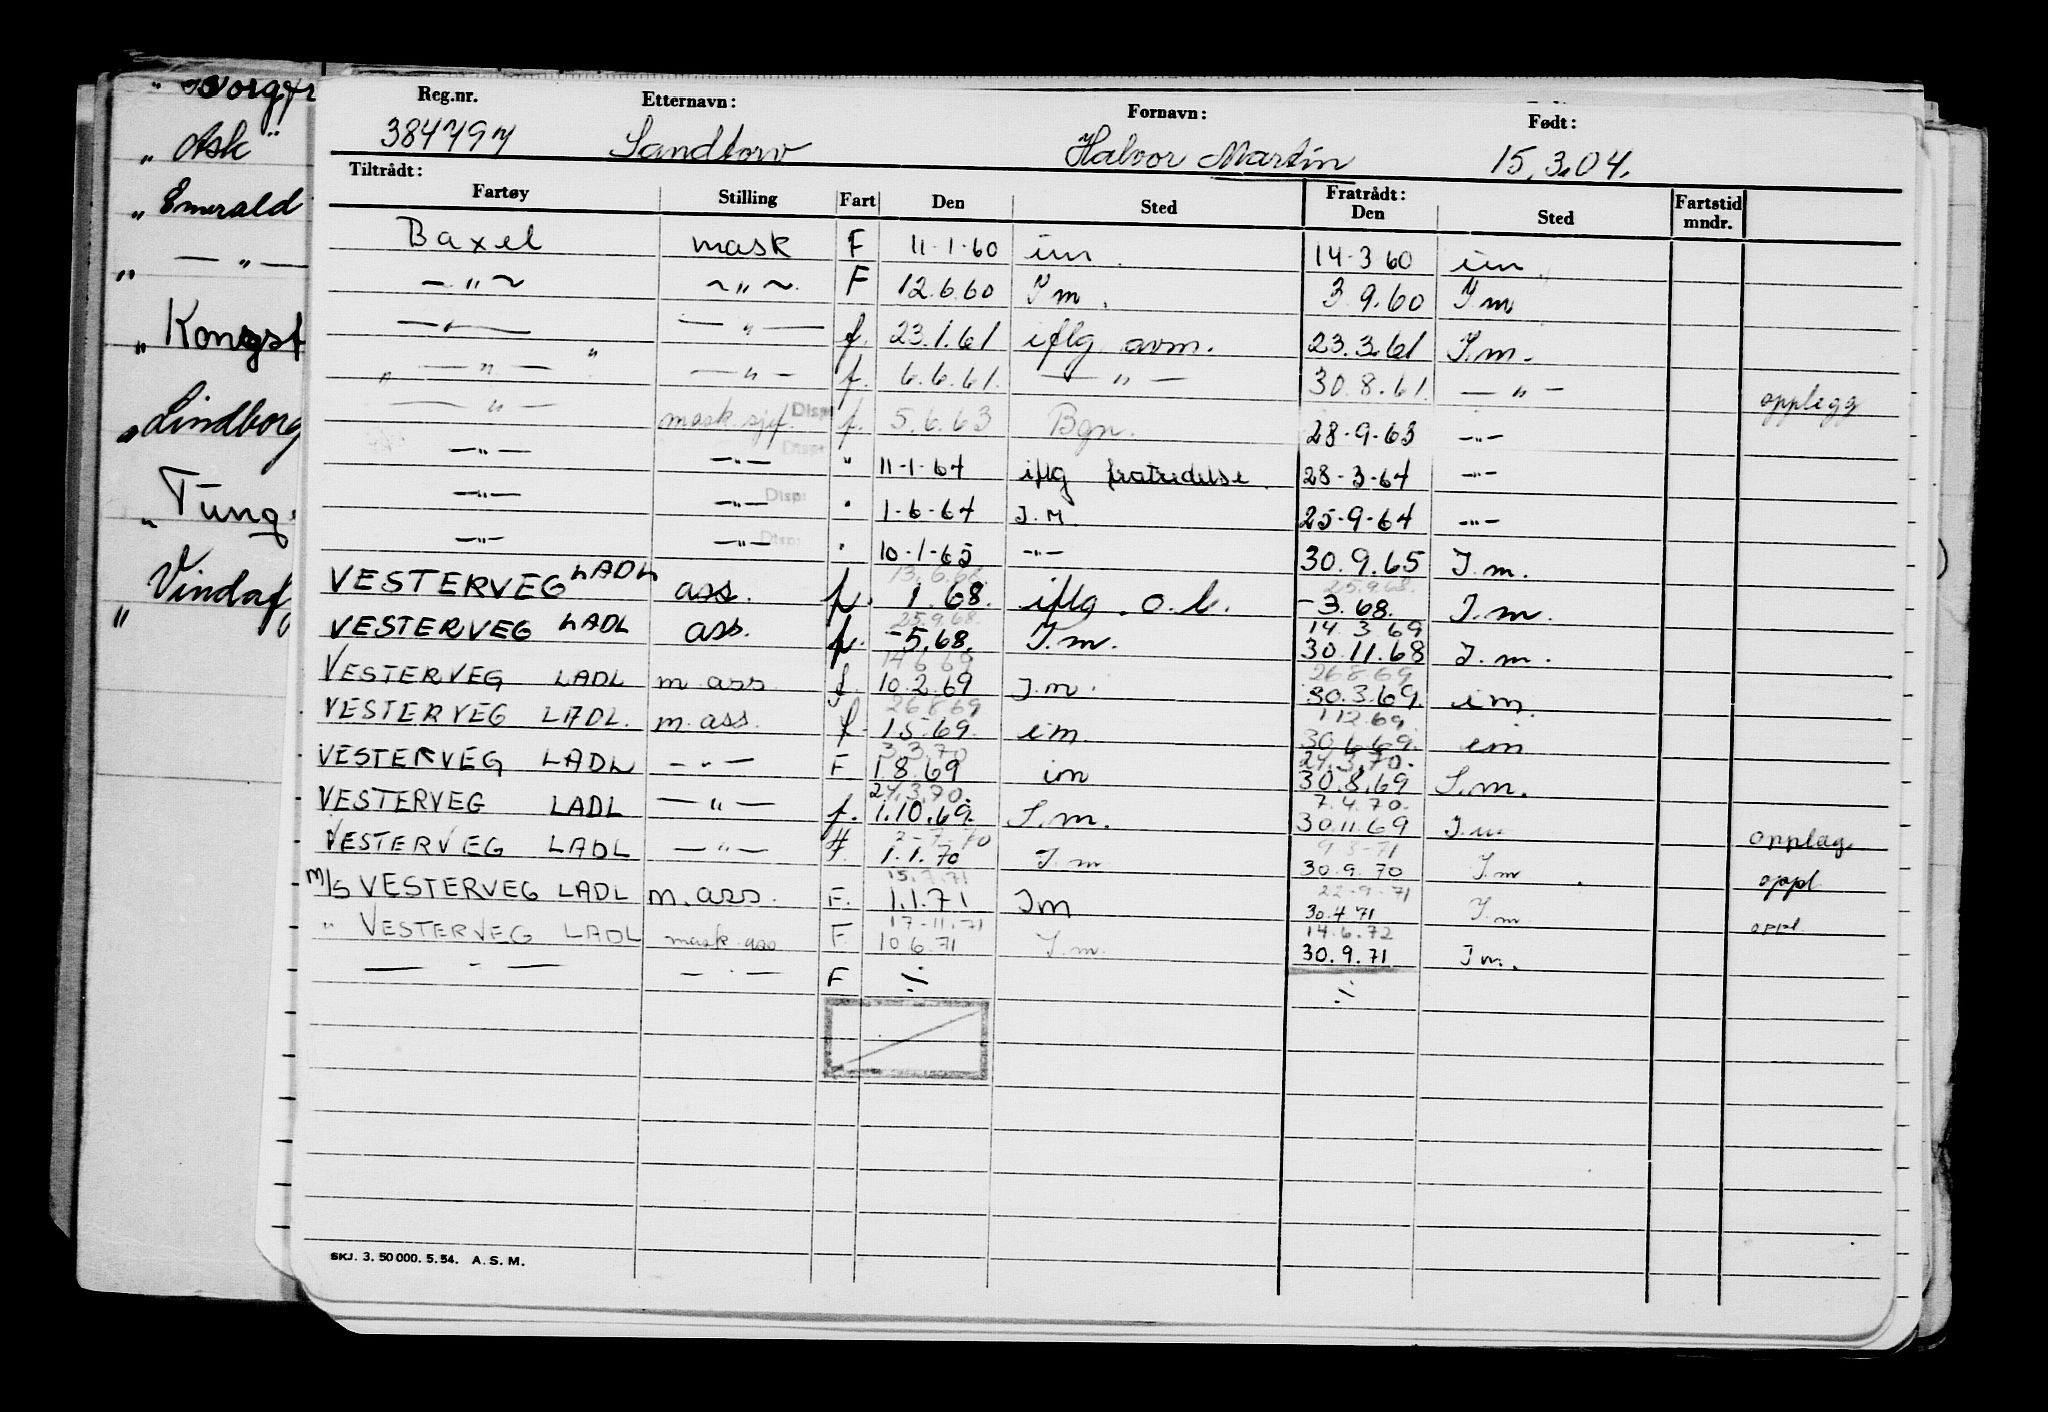 Reg.nr. Etternavn: Fornavn: Født:
384797 Sandtorv Halvor Martin 15.3.04.
Tiltrådt: Fratrådt:
Fartøy Stilling Fart Den Sted Den Sted Fartstid mndr.
Baxel mask F 11-1-60 im 14-3-60 im
—„— —„— F 12.6.60 I m. 3.9.60 I m
—„— —„— f. 23.1.61 iflg. avm. 23.3.61 I.m.
—„— —„— f. 6.6.61. —„— 30.8.61. —„— opplegg
—„— mask.sjef. Disp: f. 5.6.63 Bgn. 28-9-63 —„—
—„— —„— Disp: „ 11-1-64 iflg fratredelse. 28-3-64 —„—
—„— —„— Disp: „ 1-6-64 I.M. 25-9-64 —„—
—„— —„— Disp: „ 10-1-65 —„— 30.9.65 I.m.
13.6.68 25.9.68.
VESTERVEG LADL ass. f. 1.68. iflg. o.b. -3.68. I.m.
25.9.68. 14.3.69
VESTERVEG LADL ass. f. -5.68. I.m. 30.11.68 I.m.
14.6.69 26.8.69
VESTERVEG LADL m.ass. f. 10.2.69 I.m. 30.3.69. im.
26.8.69 1.12.69
VESTERVEG LADL. m.ass. f. 1.5.69. im 30.6.69. im
3.3.70 24.3.70.
VESTERVEG LADL —„— F. 1.8.69 im 30.8.69 I.m.
24.3.70. 7.4.70.
VESTERVEG LADL —„— f. 1.10.69. I.m. 30.11.69 I.m opplag.
2-7-70 9-3-71
VESTERVEG LADL —„— F. 1.1.70 I.m 30.9.70 I.m. oppl
15.7.71 22-9-71
M/S VESTERVEG LADL m.ass. F. 1.1.71 Im 30.4.71 I.m oppl.
17-11.71 14.6.72
„ VESTERVEG LADL mask.ass F. 10.6.71 I.m. 30.9.71 Im.
—„— —„— F ÷ ÷
SKJ. 3. 50 000. 5. 54. A. S. M.
„ Ask"
„ Emerald
„ —„—
„ Kongst
„ Lindborg
„ Tung
„ Vindaf